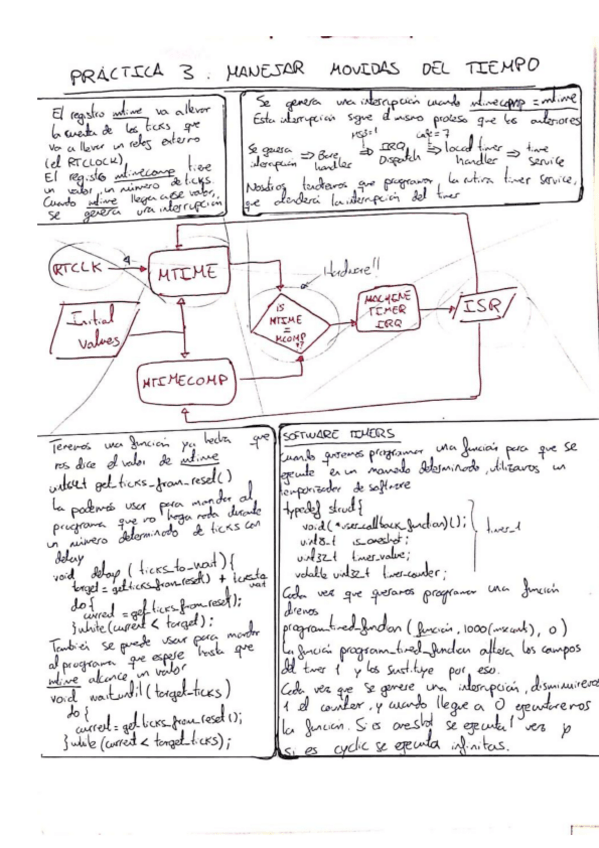 PRÁCTICA 3. MANEJAR MOVIDAS DEL TIEMPO
El registro mtime va a llevar
la cuenta de los ticks que
va a llevar un reloj externo
(el RTCLOCK)
El registro mtimecomp tiene
un valor, un número de ticks.
Cuando mtime llega a ese valor,
se genera una interrupción
Se genera una interrupción cuando mtimecomp = mtime
Esta interrupción sigue el mismo proceso que las anteriores
Se genera interrupción ⇒ Bare handler ⇒ IRQ Dispatch ⇒ local timer handler ⇒ time service
Nosotros tendremos que programar la rutina timer service,
que atenderá la interrupción del timer
RTCLK
MTIME
Hardware!!
Initial
values
IS
MTIME
=
MCOMP
?
MACHINE
TIMER
IRQ
ISR
MTIMECOMP
Tenemos una función ya hecha que
nos dice el valor de mtime
get_ticks_from_reset()
La podemos usar para mandar al
programa que no haga nada durante
un número determinado de ticks con
delay
void delay (ticks_to_wait) {
target = get_ticks_from_reset() + ticks_to_wait
do {
current = get_ticks_from_reset();
} while (current < target);
También se puede usar para mandar
al programa que espere hasta que
mtime alcance un valor
void wait_until (target_ticks)
do {
current = get_ticks_from_reset();
} while (current < target_ticks);
SOFTWARE TIMERS
Cuando queremos programar una función para que se
ejecute en un momento determinado, utilizamos un
temporizador de software
typedef struct {
void (*user_callback_function)();
uint8_t is_oneshot;
uint32_t timer_value;
volatile uint32_t timer_counter;
timer_1
Cada vez que queramos programar una función
diremos
program_timed_function (función, 1000 (miscants), 0)
La función program_timed_function altera los campos
del timer 1 y los sustituye por eso.
Cada vez que se genere una interrupción, disminuiremos
1 el counter, y cuando llegue a 0 ejecutaremos
la función. Si es oneshot se ejecuta 1 vez y
si es cyclic se ejecuta infinitas.